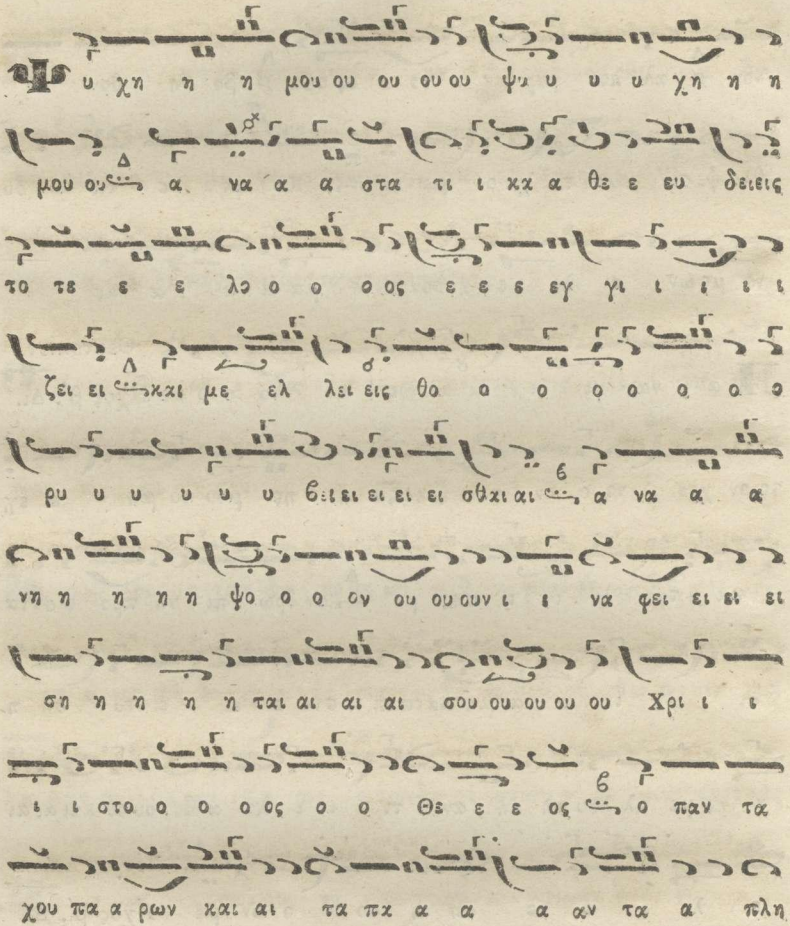 Ψυ χη η η μου ου ου ου ου ψυ υ υ υ χη η η
μου ου Δ α να α α στα τι ι κα α θε ε ευ δειεις
το τε ε ε λο ο ο οος ε ε ε εγ γι ι ι ι ι
ζει ει Δ και με ελ λει εις θο ο ο ο ο ο ο ο
ρυ υ υ υ υ υ βειει ει ει ει σθαι αι β α να α α
νη η η η η ψο ο ο ον ου ου ουν ι ι να φει ει ει ει
ση η η η η ται αι αι αι σου ου ου ου ου Χρι ι ι
ι ι στο ο ο ο ος ο ο Θε ε ε ος β ο παν τα
χου πα α ρων και αι τα πα α α α αν τα α πλη